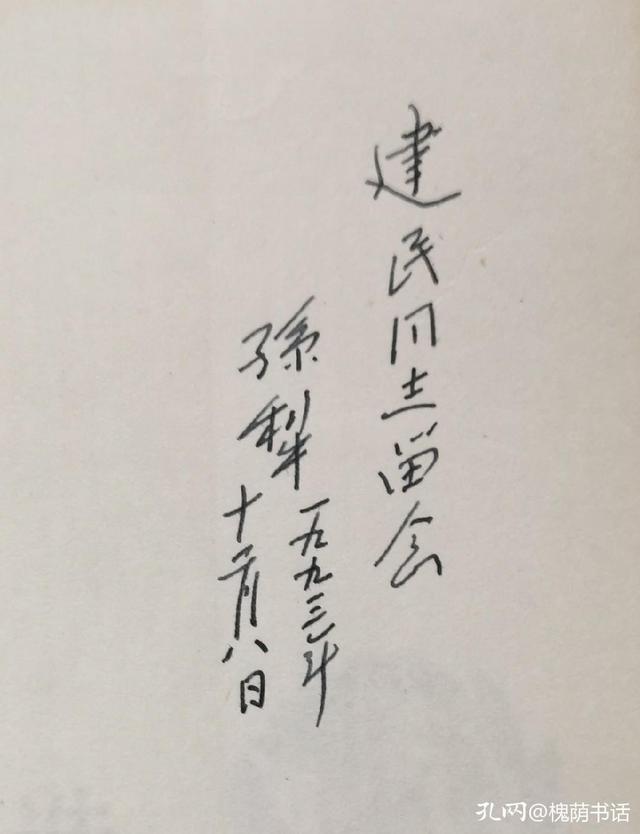 建民同志留念
孫犁
一九九三年
十二月八日
孔网@槐荫书话